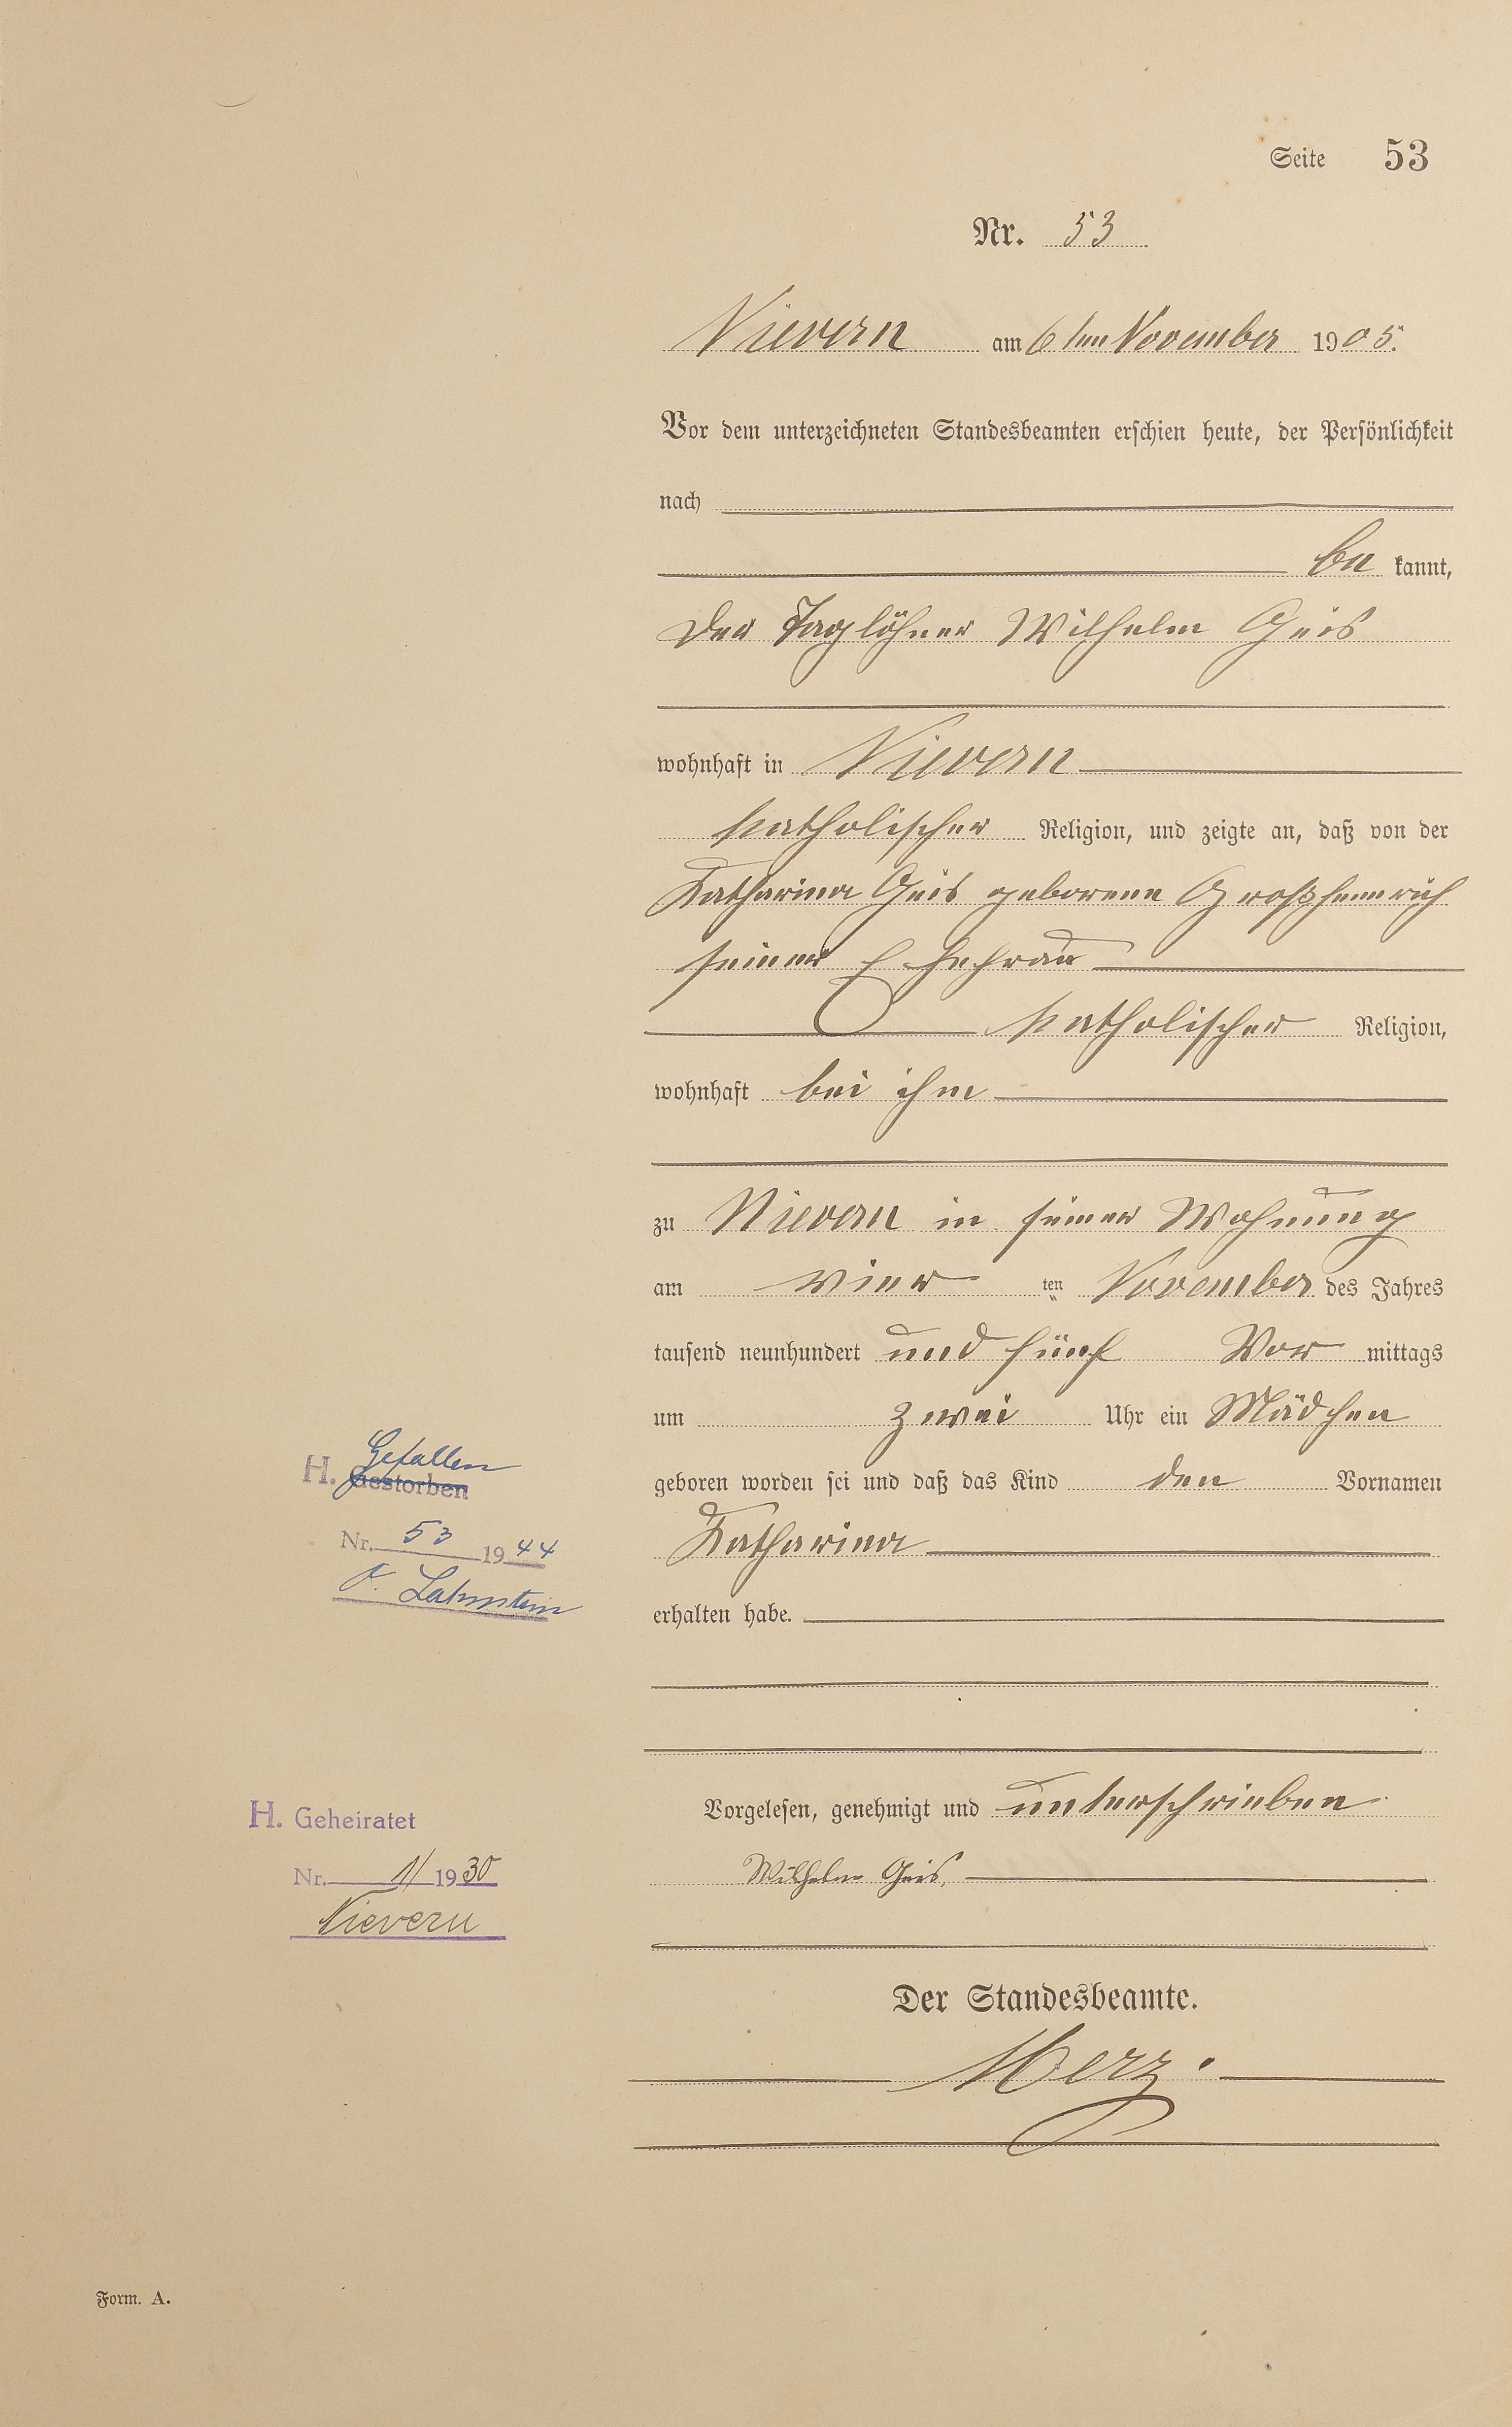 Seite 53
Nr. 53
Nievern am 6ten November 1905.
Vor dem unterzeichneten Standesbeamten erschien heute, der Persönlichkeit
nach
be kannt,
der Taglöhner Wilhelm Geis
wohnhaft in Nievern
katholischer Religion, und zeigte an, daß von der
Katharina Geis geborene Großhennrich
seiner Ehefrau
katholischer Religion,
wohnhaft bei ihm
zu Nievern in seiner Wohnung
am vier ten November des Jahres
tausend neunhundert und fünf Vor mittags
um zwei Uhr ein Mädchen
geboren worden sei und daß das Kind den Vornamen
Katharina
erhalten habe.
Vorgelesen, genehmigt und unterschrieben
Wilhelm Geis.
Der Standesbeamte.
Merz.
Gefallen
H. Gestorben
Nr. 53 1944
Lahnstein
H. Geheiratet
Nr. 1/ 1930
Nievern
Form. A.